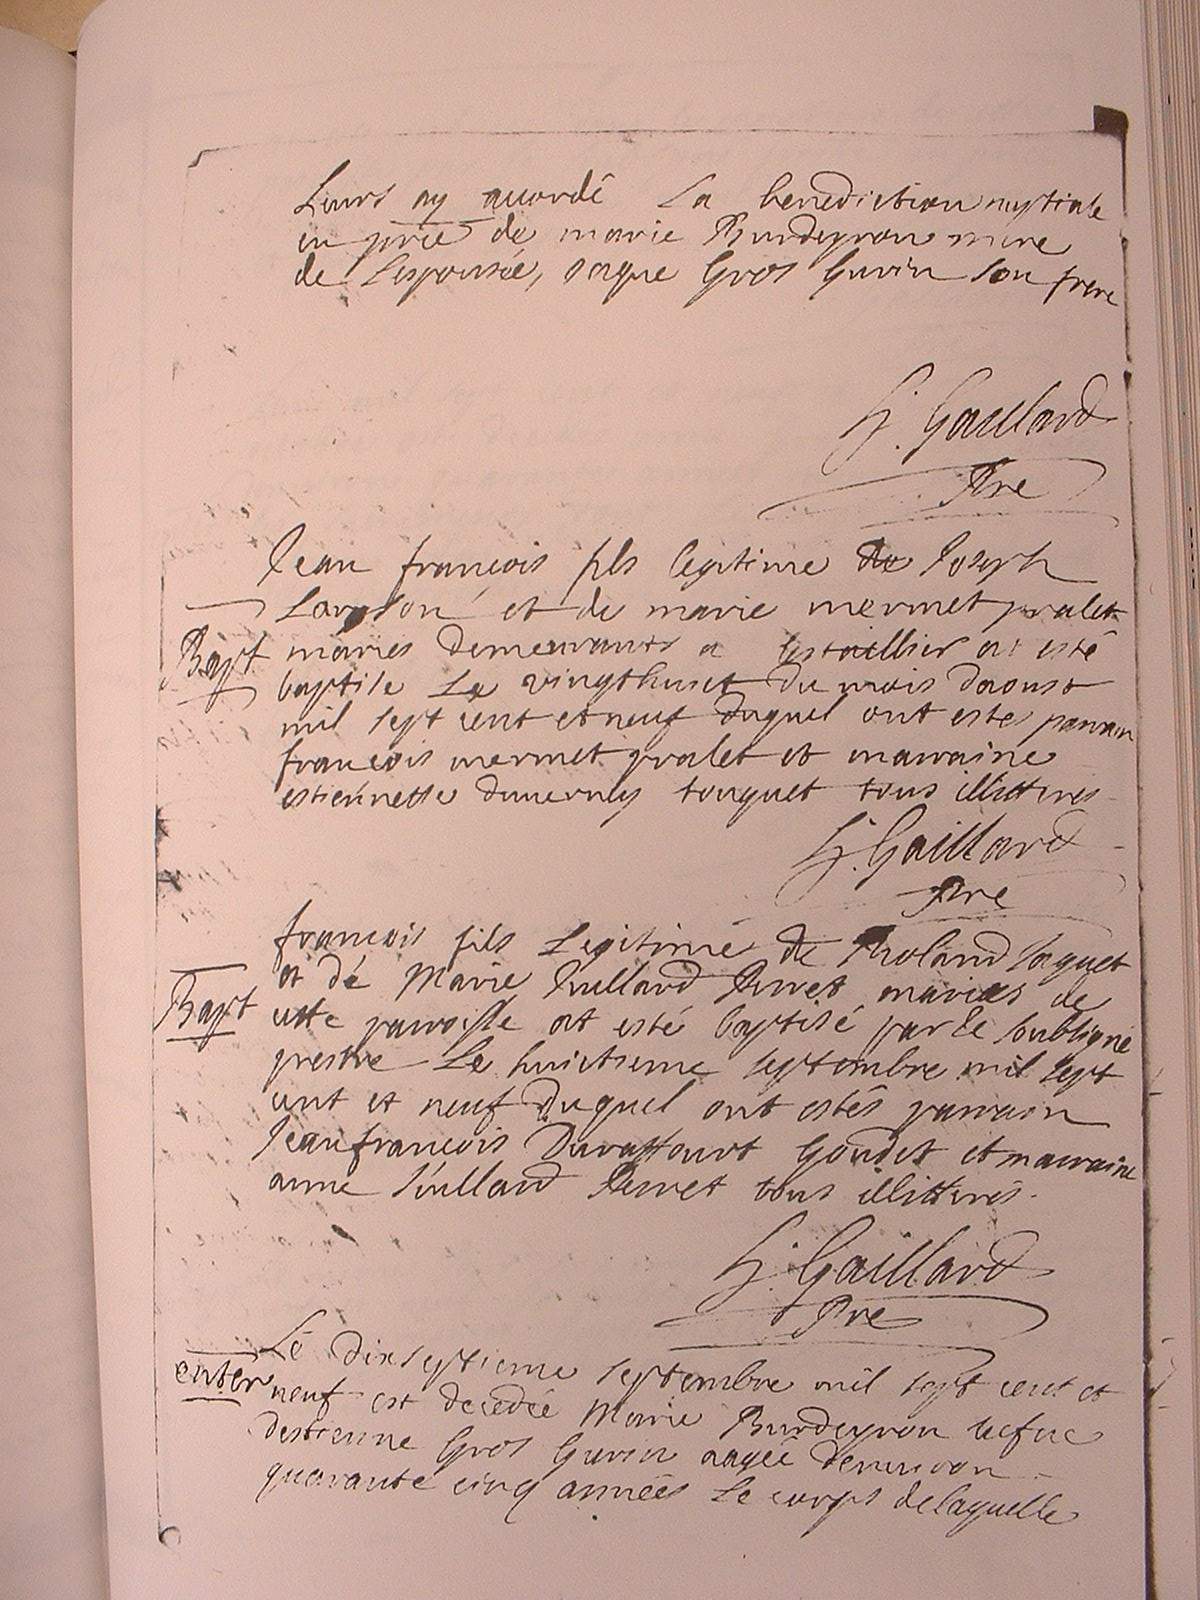 Leurs ay accordé La benediction nuptiale
en pnce de marie Burdeyron mere
de Lespousée, Jaque Gros Gurin son frere
G. Gaillard
Pre
Jean françois fils legitime de Joseph
et de marie mermet gralet
Bapt mariés demeurants a Lestaillier at esté
baptise Le vingthuict du mois daoust
mil sept cent et neuf duquel ont estes parrain
françois mermet gralet et marraine
estiennette duverny touquet tous illitteres
G. Gaillard
Pre
francois fils Legitime de Roland Jaquet
et de Marie Jullard Perret mariés de
Bapt cette paroisse at esté baptisé par le soubsigné
prestre Le huictieme septembre mil sept
cent et neuf duquel ont estés parrain
Jeanfrancois Duraffourt Goudet et marraine
anne Jullard Perret tous illitterés.
G. Gaillard
Pre
Le dixseptieme septembre mil sept cent et
enter neuf est decedée Marie Burdeyron vefue
destienne Gros Gurin aagée denuiron
quarante cinq années Le corps de laquelle